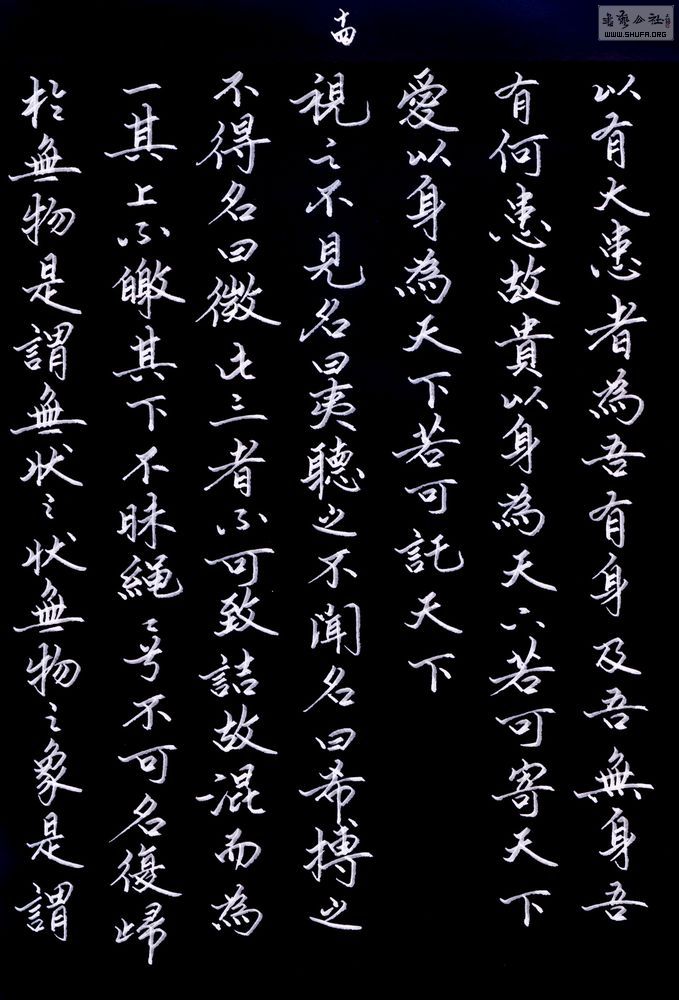 十四
以有大患者為吾有身及吾無身吾
有何患故貴以身為天下若可寄天下
愛以身為天下若可託天下
視之不見名曰夷聽之不聞名曰希搏之
不得名曰微此三者不可致詰故混而為
一其上不皦其下不昧繩〻兮不可名復歸
於無物是謂無狀之狀無物之象是謂
WWW.SHUFA.ORG